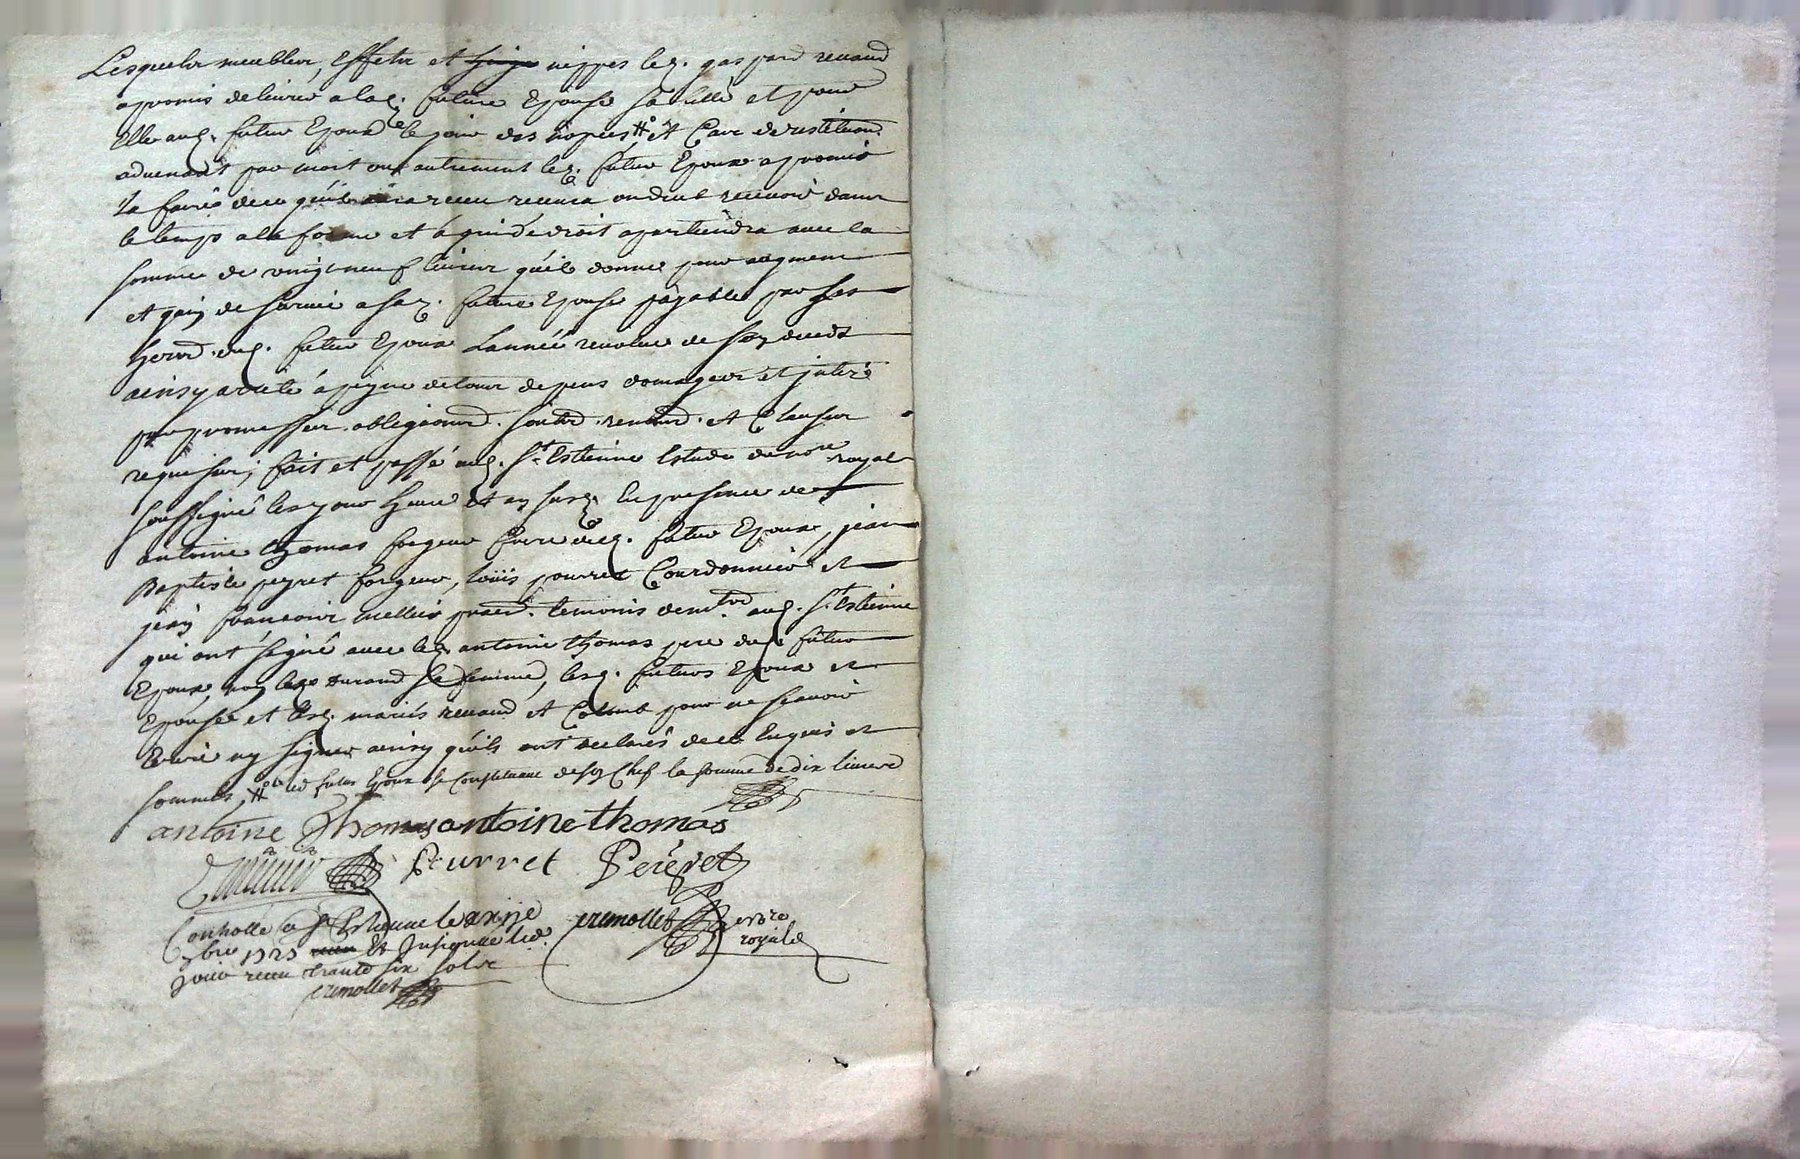 Lesquels meubles, Effets et nippes led. gaspard renaud
a promis delivrer a lad. future Epouse sa fille et pour
Elle aud. futur Epoux le jour des nopces # Et Cave de restitution
advenant par mort ou autrement led. futur Epoux a promis
la faire de ce quil aura receu recevra ou deub recevoir dans
le temps a la forme et a qui de droit apartiendra avec la
somme de vingt neuf livres quil donne pour augment
et gain de survie a sad. future Epouse payable par ses
herod. dud. futur Epoux Lannée revolue de son deceds
ainsy arreté a peyne de tous depens domages et interé
par promesses obligaons. soubd. renond. et Clauses
requises; fait et passé aud. St. Estienne Estude du nore royal
soussigné les jour heure et an susd. En presence de
antoine thomas forgeur frere dud. futur Epoux, jean
Baptiste peyret forgeur, loüis pourret Courdonnier et
jean francois mellier pratd. temoins demtrod. aud. St. Estienne
qui ont signé avec led. antoine thomas pere dud. futur
Epoux, non lad. durand sa femme, lesd. futurs Epoux et
Epouse et lesd. mariés renaud et Colomb pour ne scavoir
Ecrire ny signer ainsy quils ont declarés de ce Enquis et
sommés, # led futur Epoux se constituant de son Chef la somme de dix livres
antoine Thomas antoine thomas
Pourret Peyret
Controllé a St Estienne le
9bre 1725 Et Insinué led.
jour receu trante six sols
crimollet
crimollet
nore
royal